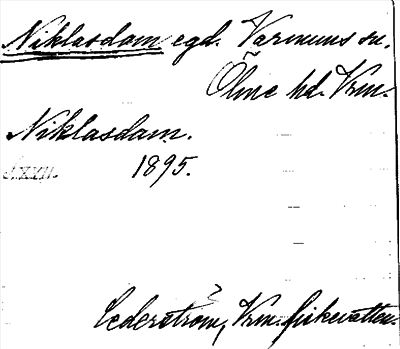 Niklasdam egd. Varnums sn.
Ölme hd. Vrm.
Niklasdam.
s. XXII. 1895.
Cederström, Vrm. fiskevatten.